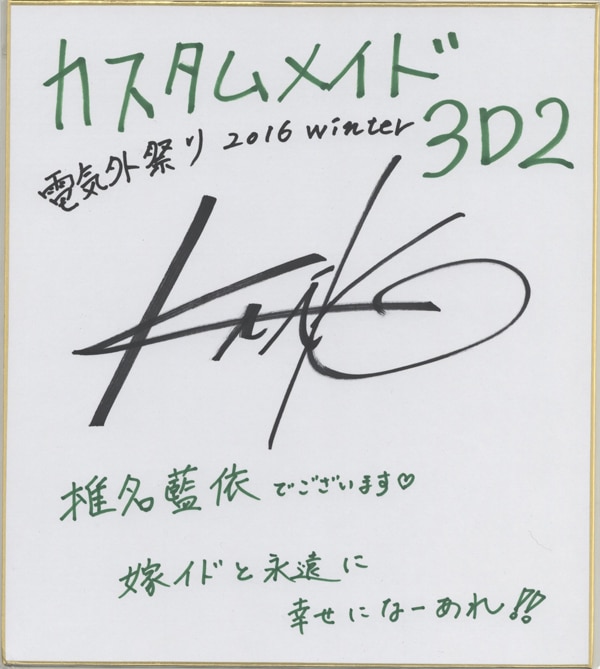 カスタムメイド
3D2
電気外祭り 2016 winter
椎名藍依でございます♡
嫁イドと永遠に
幸せになーあれ!!